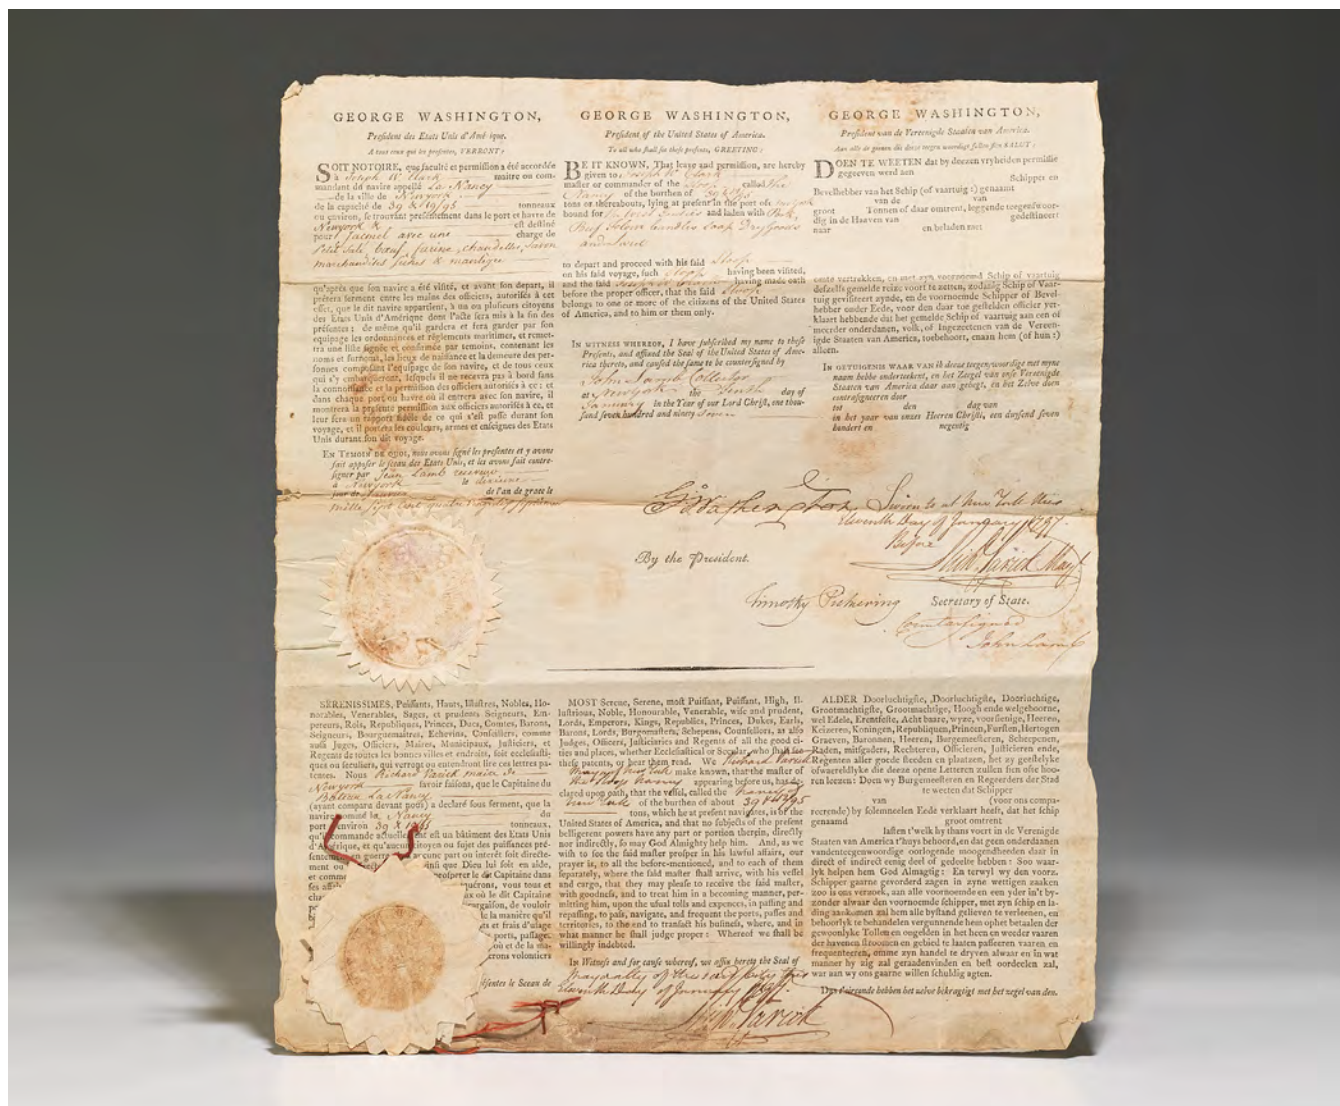 GEORGE WASHINGTON,
President des Etats Unis d'Amérique.
A tous ceux qui les presentes, VERRONT:
SOIT NOTOIRE, que faculté et permission a été accordée
à Joseph W Clark maitre ou com-
mandant du navire appellé La Nancy
de la ville de Newyork
de la capacité de 39 & 19/95 tonneaux
ou environ, se trouvant présentement dans le port et havre de
Newyork & est destiné
pour Jacmel avec une charge de
Petit Salé bœuf, farine, chandelles, savon
marchandises séches &
qu'après que son navire a été visité, et avant son départ, il
prêtera serment entre les mains des officiers, autorisés à cet
effet, que le dit navire appartient, à un ou plusieurs citoyens
des Etats Unis d'Amérique dont l'acte sera mis à la fin des
présentes; de même qu'il gardera et fera garder par son
equipage les ordonnances et règlements maritimes, et remet-
tra une liste signée et confirmée par temoins, contenant les
noms et surnoms, les lieux de naissance et la demeure des per-
sonnes composant l'équipage de son navire, et de tous ceux
qui s'y embarqueront, lesquels il ne recevra pas à bord sans
la connoissance et la permission des officiers autorisés à ce; et
dans chaque port ou havre où il entrera avec son navire, il
montrera la présente permission aux officiers autorisés à ce, et
leur fera un rapport fidèle de ce qui s'est passé durant son
voyage, et il portera les couleurs, armes et enseignes des Etats
Unis durant son dit voyage.
EN TEMOIN DE QUOI, nous avons signé les presentes et y avons
fait apposer le sceau des Etats Unis, et les avons fait contre-
signer par Jean Lamb receveur
à Newyork le dixieme
jour de Janvier de l'an de grace le
mille sept cent quatre vingt dix sept
GEORGE WASHINGTON,
President of the United States of America.
To all who shall see these presents, GREETING:
BE IT KNOWN, That leave and permission, are hereby
given to Joseph W Clark
master or commander of the Sloop called the
Nancy of the burthen of 39 19/95
tons or thereabouts, lying at present in the port of New York
bound for and laden with Pork,
Beef Flour Candles Soap Dry Goods
to depart and proceed with his said Sloop
on his said voyage, such Sloop having been visited,
and the said Joseph W Clark having made oath
before the proper officer, that the said Sloop
belongs to one or more of the citizens of the United States
of America, and to him or them only.
IN WITNESS WHEREOF, I have subscribed my name to these
Presents, and affixed the Seal of the United States of Ame-
rica thereto, and caused the same to be countersigned by
John Lamb Collector
at Newyork the Tenth day of
January In the Year of our Lord Christ, one thou-
sand seven hundred and ninety seven
GEORGE WASHINGTON,
President van de Vereenigde Staaten van America.
Aan alle de geenen die deeze tegenwoordige sullen sien SALUT:
DOEN TE WEETEN dat by deezen vryheiden permissie
gegeven werd aen
Schipper en
Bevelhebber van het Schip (of vaartuig:) genaamt
van de van
groot Tonnen of daar omtrent, leggende tegenswoor-
dig in de Haaven van gedestineert
naar en beladen met
omte vertrekken, en met zyn voornoemd Schip of vaartuig
defzelfs gemelde reize voort te zetten, zodanig Schip of Vaar-
tuig gevisiteert zynde, en de voornoemde Schipper of Bevel-
hebber onder Eede, voor den daar toe gestelden officier ver-
klaart hebbende dat het gemelde Schip of vaartuig aan een of
meerder onderdanen, volk, of Ingezeetenen van de Vereen-
igde Staaten van America, toebehoort, enaan hem (of hun:)
alleen.
IN GETUIGENIS WAAR VAN ik deeze tegenwoordige met myne
naam hebbe onderteekent, en het Zeegel van onse Vereenigde
Staaten van America daar aan gehegt, en het Zelve doen
contrasigneren door
tot den dag van
in het jaar van onzes Heeren Christi, een duysend seven
hondert en negentig
G:o Washington
Sworn to at New York this
Eleventh Day of January 1797.
Before
Rich'd Varick May'r
By the President.
Timothy Pickering Secretary of State.
Countersigned
John Lamb
SERENISSIMES, Puissants, Hauts, Illustres, Nobles, Ho-
norables, Venerables, Sages, et prudents Seigneurs, Em-
pereurs, Rois, Republiques, Princes, Ducs, Comtes, Barons,
Seigneurs, Bourguemaitres, Echevins, Conseillers, comme
aussi Juges, Officiers, Maires, Municipaux, Justiciers, et
Regents de toutes les bonnes villes et endroits, soit ecclesiasti-
ques ou seculiers, qui verront ou entendront lire ces lettres pa-
tentes. Nous Richard Varick maire de
Newyork savoir faisons, que le Capitaine du
Bateau La Nancy
(ayant comparu devant nous) a declaré sous serment, que la
navire nommé la Nancy du
port environ 39 & 19/95 tonneaux,
qu'il commande actuellement est un bâtiment des Etats Unis
d'Amérique, et qu'aucun citoyen ou sujet des puissances pré-
sentement en guerre aucune part ou intérêt directe-
ainsi que Dieu lui soit en aide,
prosperer le dit Capitaine dans
vous tous et
où le dit Capitaine
de vouloir
de la manière qu'il
et frais d'usage
ports, passage,
où et de la ma-
volontiers
le Sceau de
MOST Serene, Serene, most Puissant, Puissant, High, Il-
lustrious, Noble, Honourable, Venerable, wise and prudent,
Lords, Emperors, Kings, Republics, Princes, Dukes, Earls,
Barons, Lords, Burgomasters, Schepens, Counsellors, as also
Judges, Officers, Justiciaries and Regents of all the good ci-
ties and places, whether Ecclesiastical or Secular, who shall see
these patents, or hear them read. We Richard Varick
Mayor of New York make known, that the master of
the Sloop Nancy appearing before us, has de-
clared upon oath, that the vessel, called the Nancy of
New York of the burthen of about 39 & 19/95
tons, which he at present navigates, is of the
United States of America, and that no subjects of the present
belligerent powers have any part or portion therein, directly
nor indirectly, so may God Almighty help him. And, as we
wish to see the said master prosper in his lawful affairs, our
prayer is, to all the before-mentioned, and to each of them
separately, where the said master shall arrive, with his vessel
and cargo, that they may please to receive the said master,
with goodness, and to treat him in a becoming manner, per-
mitting him, upon the usual tolls and expences, in passing and
repassing, to pass, navigate, and frequent the ports, passes and
territories, to the end to transact his business, where, and in
what manner he shall judge proper: Whereof we shall be
willingly indebted.
In Witness and for cause whereof, we affix hereto the Seal of
Mayoralty of the said City this
Eleventh Day of January 1797.
Rich'd Varick
ALDER Doorluchtigste, Doorluchtige, Doorluchtige,
Grootmachtigste, Grootmachtige, Hoogh ende welgeboorne,
wel Edele, Erentfeste, Acht baare, wyze, voorsienige, Heeren,
Keizeren, Koningen, Republiquen, Princen, Fursten, Hertogen
Graeven, Baronnen, Heeren, Burgemeesteren, Scheepenen,
Raden, mitsgaders, Rechteren, Officieren, Justicieren ende,
Regenten aller goede steeden en plaatsen, het zy geestelyke
ofwaereldlyke die deeze opene Letteren zullen sien ofte hoo-
ren leezen: Doen wy Burgemeesteren en Regeerders der Stad
te weeten dat Schipper
van (voor ons compa-
reerende) by solemneelen Eede verklaart heeft, dat het schip
genaamd groot omtrent
lasten t'welk hy thans voert in de Vereenigde
Staaten van America t'huys behoord, en dat geen onderdanen
vandentegenwoordige oorlogende moogendheeden daar in
direct of indirect eenig deel of gedeelte hebben: Soo waar-
lyk helpen hem God Almagtig: En terwyl wy den voorz.
Schipper gaarne gevorderd zagen in zyne wettigen zaaken
zoo is ons verzoek, aan alle voornoemde en een yder in't by-
zonder alwaar den voornoemde schipper, met zyn schip en la-
ding aankomen zal hem alle bystand gelieven te verleenen, en
behoorlyk te behandelen vergunnende hem ophet betaalen der
gewoonlyke Tollen en ongelden in het heen en weeder vaaren
der havenen stroomen en gebied te laaten passeeren vaaren en
frequenteeren, omme zyn handel te dryven alwaar en in wat
manner hy zig zal geraadenvinden en best oordeelen zal,
waar aan wy ons gaarne willen schuldig agten.
hebben het zelve bekragtigt met het zegel van den.